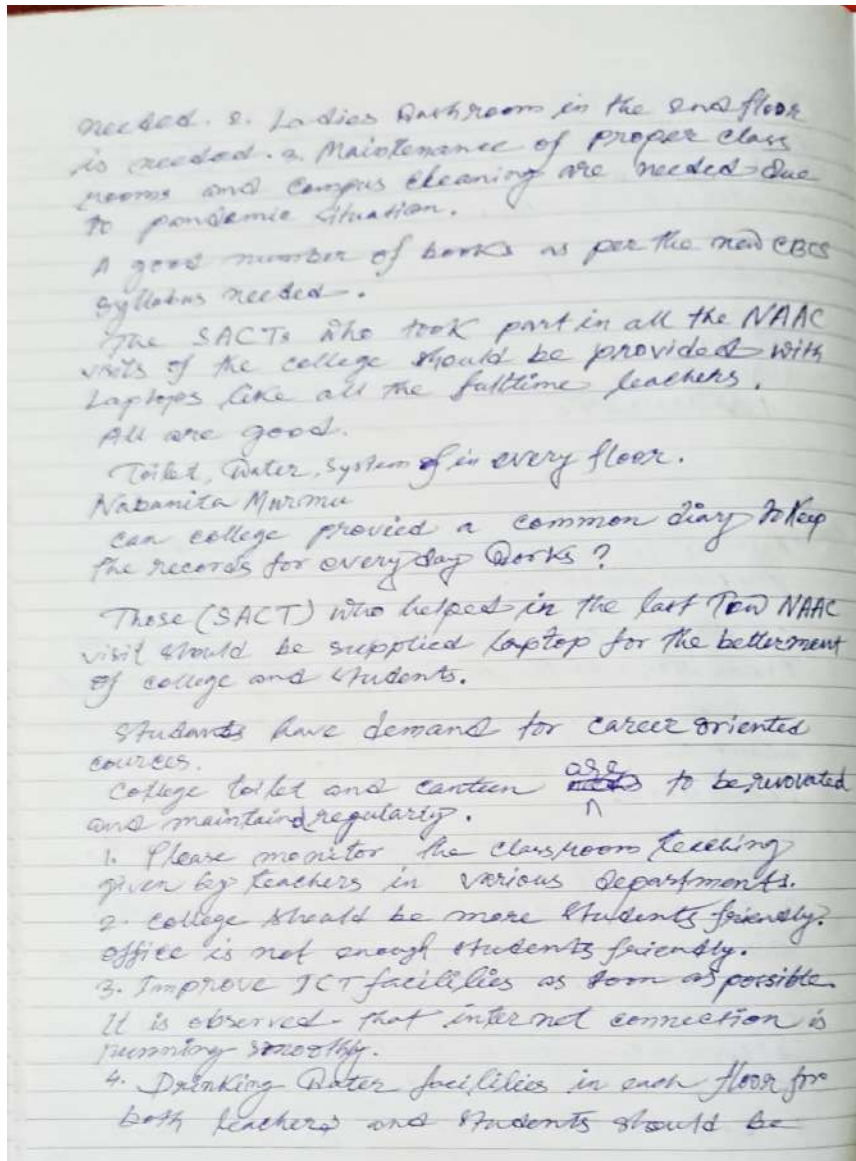 needed. 2. Ladies Bathroom in the 2nd floor
is needed. 3. Maintenance of proper class
rooms and campus cleaning are needed due
to pandemic situation.
A good number of books as per the new CBCS
syllabus needed.
The SACTs who took part in all the NAAC
visits of the college should be provided with
Laptops like all the fulltime teachers.
All are good.
Toilet, Water, System of in every floor.
Nabanita Murmu
can college provied a common diary to keep
the records for every day works?
Those (SACT) who helped in the last Tow NAAC
visit should be supplied laptop for the betterment
of college and students.
Students have demand for career oriented
cources.
College toilet and canteen are to be renovated
and maintaind regularly.
1. Please monitor the classroom teaching
given by teachers in various departments.
2. College should be more students friendly.
office is not enough students friendly.
3. Improve ICT facilities as soon as possible.
It is observed that internet connection is
running smoothly.
4. Drinking Water facilities in each floor for
both teachers and students should be